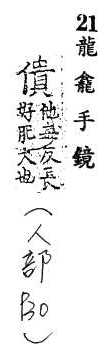 21 龍龕手鏡
他反長
好肥大也
（人部）